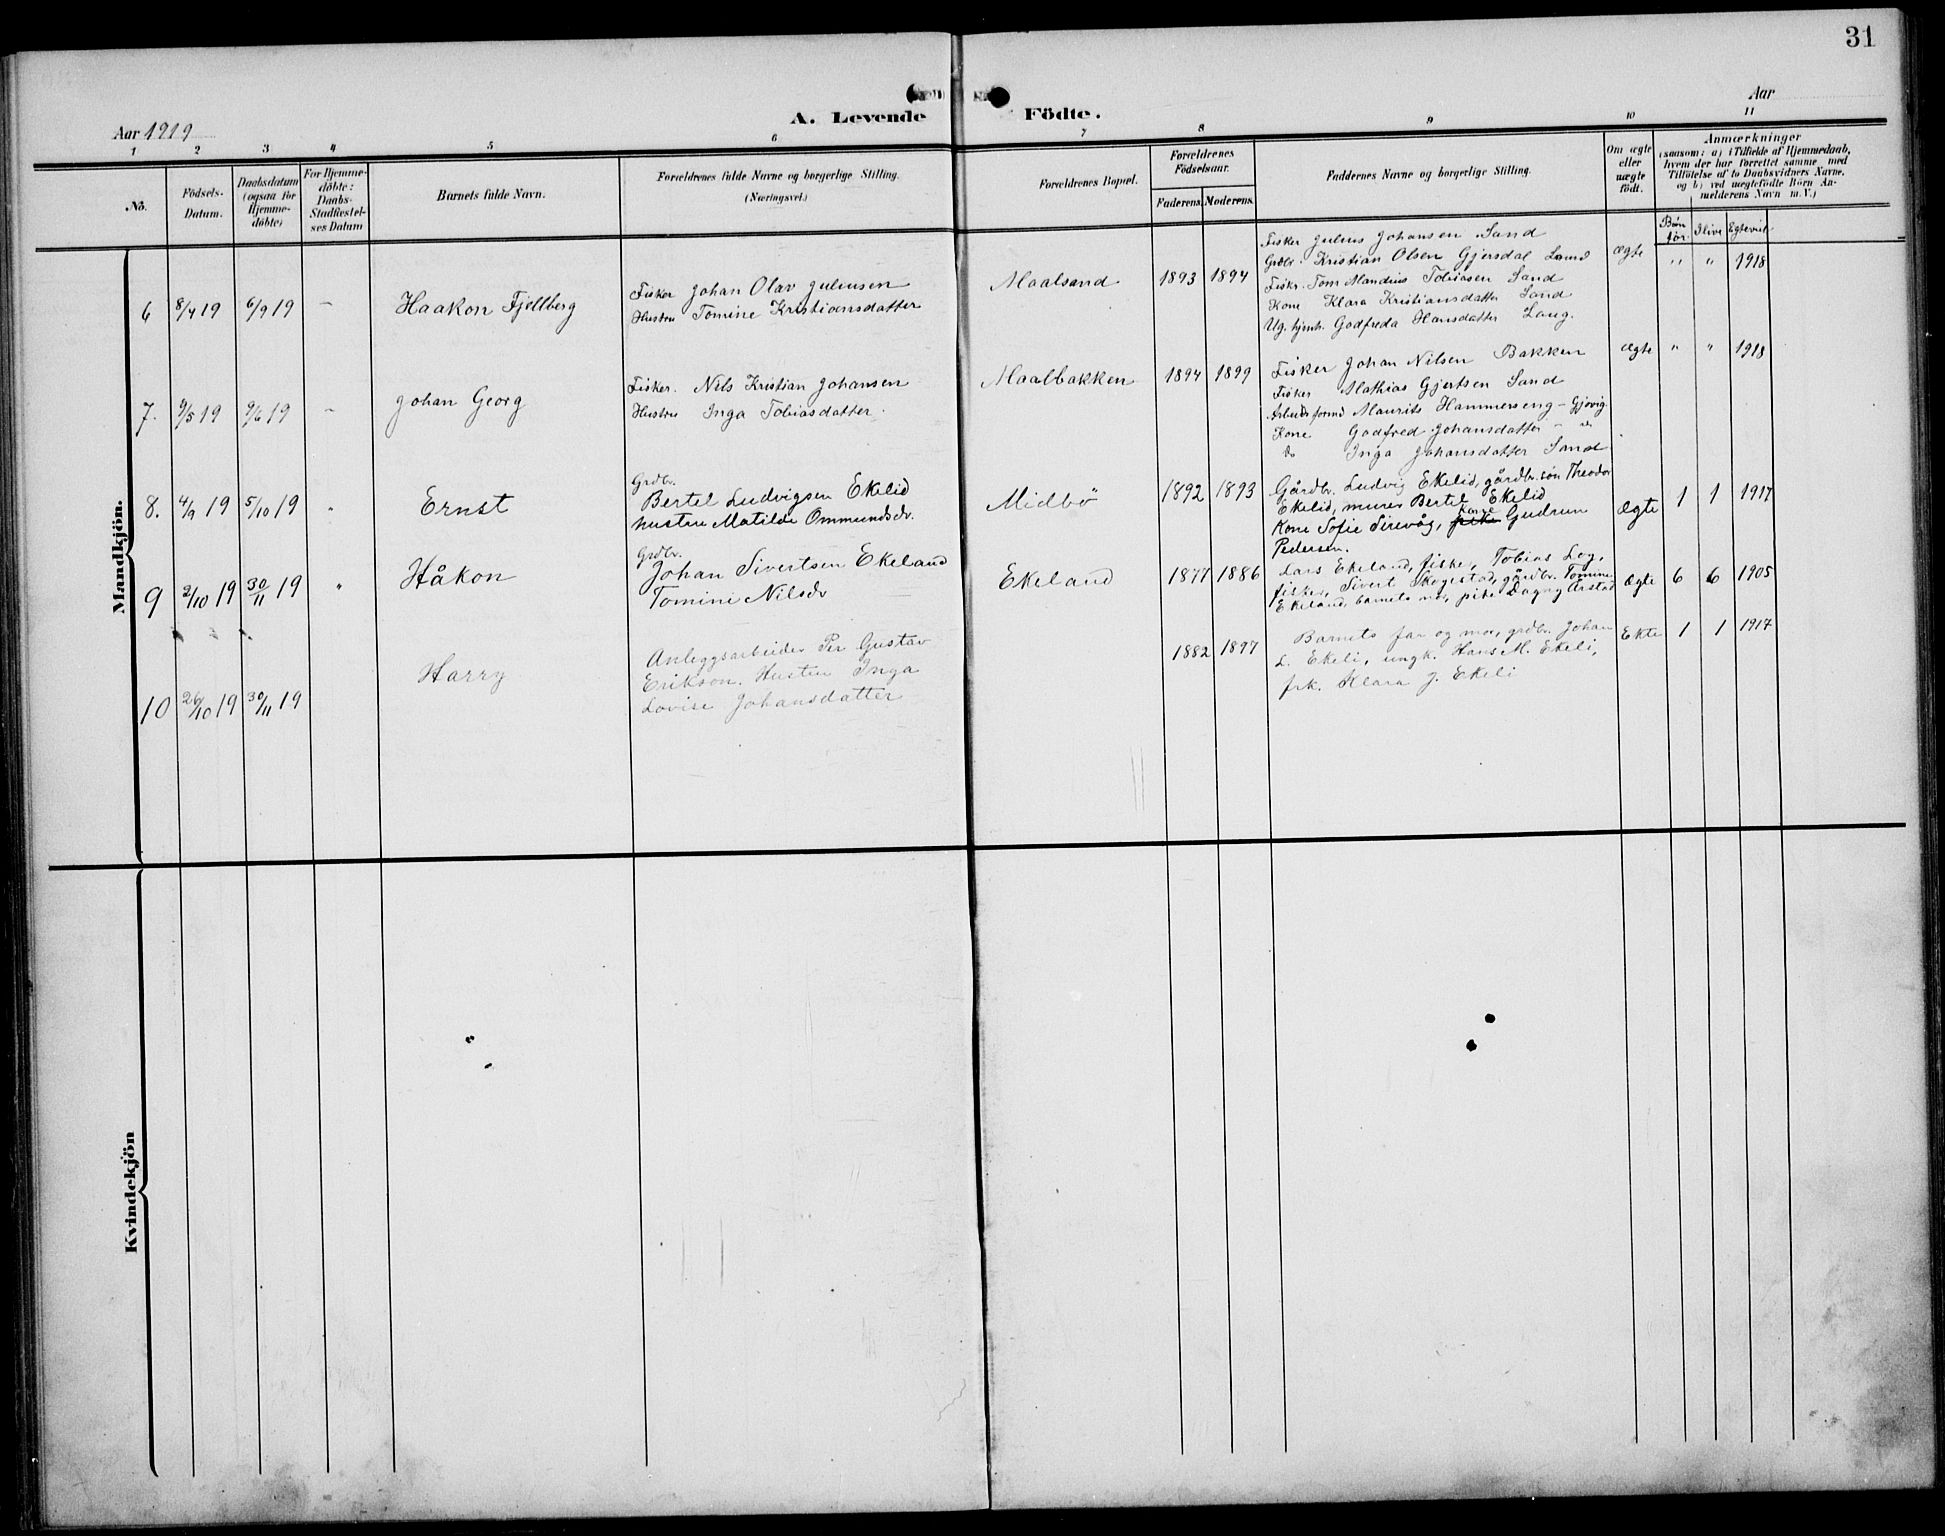 31
A. Levende Födte.
Aar 1919
Aar
1 2 3 4 5 6 7 8 9 10 11
No.
Födsels-Datum.
Daabsdatum (ogsaa for Hjemme-döbte)
For Hjemme-döbte: Daabs-Stadfæstel-ses Datum
Barnets fulde Navn.
Forældrenes fulde Navne og borgerlige Stilling.
(Næringsvei.)
Forældrenes Bopæl.
Forældrenes Födselsaar.
Faderens. Moderens.
Faddernes Navne og borgerlige Stilling.
Om ægte eller uægte födt.
Anmærkninger
(saasom: a) i Tilfælde af Hjemmedaab,
hvem der har forrettet samme, med
Tilföielse af to Daabsvidners Navne,
og b) ved uægtefödte Börn An-
melderens Navn m. V.)
Børn før. Ilive Egteviet
Mandkjön.
6 8/4 19 6/9 19 – Haakon Fjellberg
Fisker Johan Olav Juliussen
Hustru Tomine Kristiansdatter
Maalsand 1893 1894
Fisker Julius Johansen Sand
Grdbr. Kristian Olsen Gjersdal Lund
Fiskr. Tom Mandius Tobiasen Sand
Kone Klara Kristiansdatter Sand
Ug. hjemv. Godfreda Hansdatter Laug.
ægte " " 1918
7. 9/5 19 9/6 19 – Johan Georg
Fisker. Nils Kristian Johansen
Hustru Inga Tobiasdatter.
Maalbakken 1894 1899
Fisker Johan Nilsen Bakken
Fisker Mathias Gjertsen Sand
Arbeidsformd Maurits Hammerseng – Gjøvig
Kone Godfred Johansdatter – do
do Inga Johansdatter Sand
ægte " " 1918
8. 4/9 19 5/10 19 " Ernst
Grdbr.
Bertel Ludvigsen Ekelid
hustru Matilde Ommundsdr.
Midbø 1892 1893
Gårdbr. Ludvig Ekelid, gårdbr.søn Theodor
Ekelid, murer Bertel Ekelid
Kone Sofie Sirevåg, pike Kone Gudrun
Pedersen.
ægte 1 1 1917
9 2/10 19 30/11 19 " Håkon
Grdbr.
Johan Sivertsen Ekeland
Tomine Nilsdr
Ekeland 1877 1886
Lars Ekeland, fisker, Tobias Log,
fisker, Sivert Skogestad, gårdbr. Tomine
Ekeland, barnets mor, pike Dagny Årstad
ægte 6 6 1905
10 26/10 19 30/11 19 Harry
Anleggsarbeider Per Gustav
Erikson. Hustru Inga
Lovise Johansdatter
1882 1897
Barnets far og mor, grdbr. Johan
L. Ekeli, ungk. Hans M. Ekeli,
frk. Klara J. Ekeli
Ekte 1 1 1917
Kvindekjön